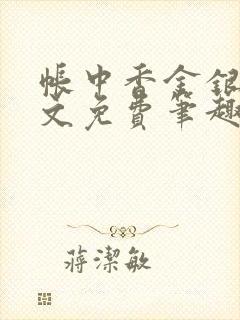 帐中香金银
文免费笔趣
蒋潔敏